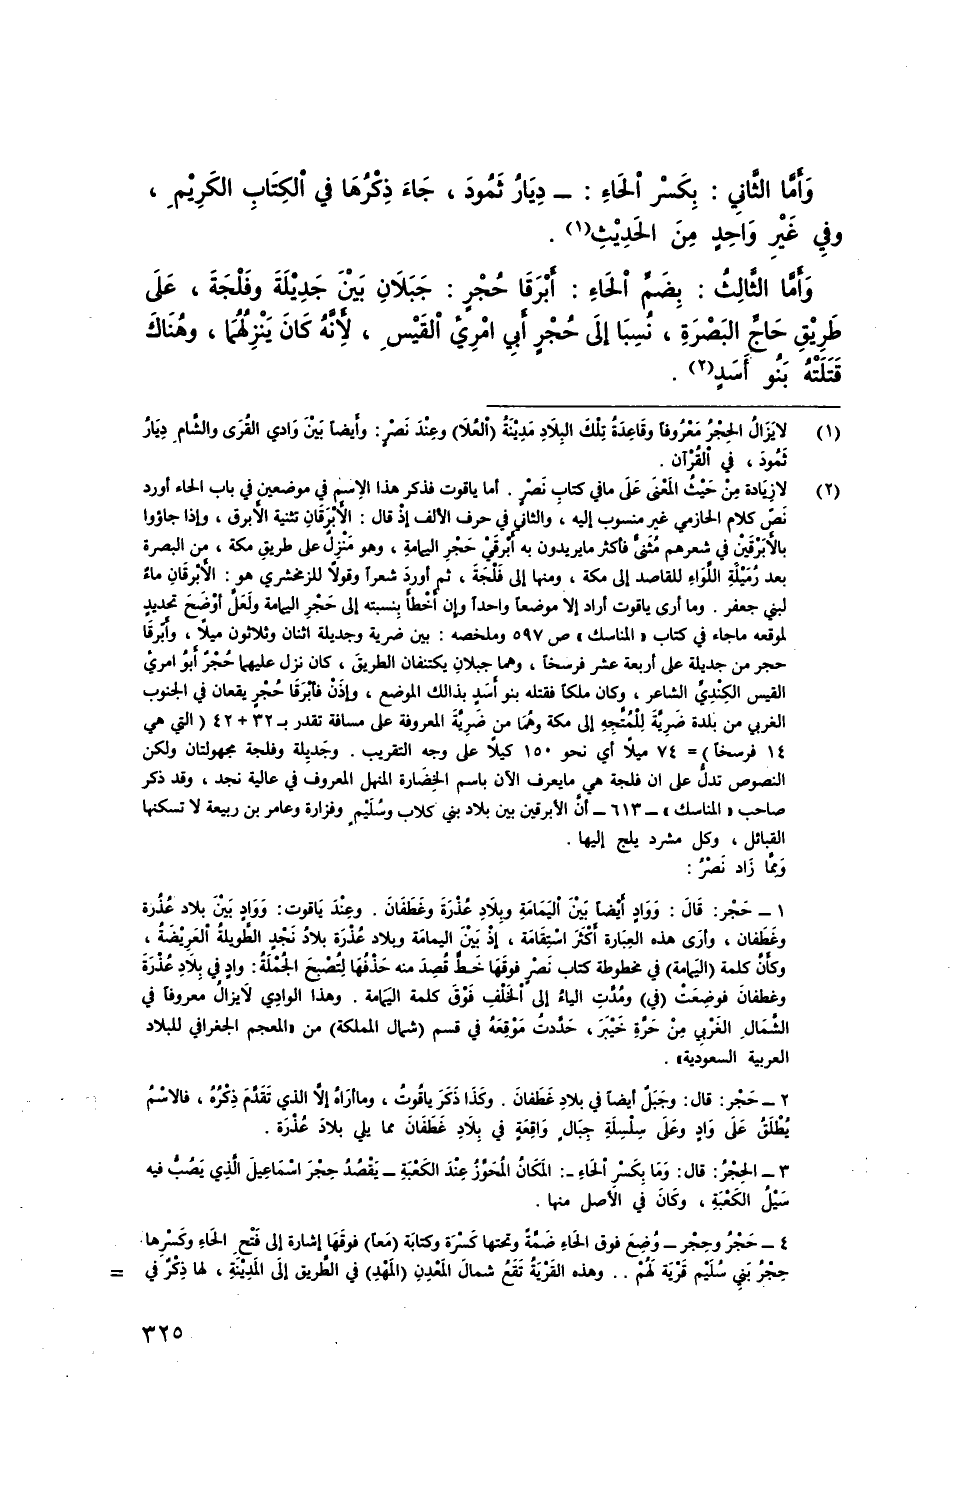 وَأَمَّا الثَّانِي : بِكَسْرِ ٱلْحَاءِ : ــ دِيَارُ ثَمُودَ ، جَاءَ ذِكْرُهَا في ٱلكِتَابِ الكَرِيْمِ ،
وفي غَيْرِ وَاحِدٍ مِنَ الحَدِيْثِ(١) .
وَأَمَّا الثَّالِثُ : بِضَمِّ ٱلْحَاءِ : أَبْرَقَا حُجْرٍ : جَبَلَانِ بَيْنَ جَدِيْلَةَ وفَلْجَةَ ، عَلَى
طَرِيْقِ حَاجِّ البَصْرَةِ ، نُسِبَا إلَى حُجْرٍ أَبي امْرِئ ٱلقَيْسِ ، لِأَنَّهُ كَانَ يَنْزِلُهُمَا ، وهُنَاكَ
قَتَلَتْهُ بَنُو أَسَدٍ(٢) .
(١) لايَزَالُ الحِجْرُ مَعْرُوفاً وقَاعِدَةُ تِلْكَ البِلَادِ مَدِيْنَةُ (ٱلعُلَا) وعِنْدَ نَصْرٍ : وأيضاً بَيْنَ وَادي القُرَى والشَّامِ دِيَارُ
ثَمُودَ ، في ٱلقُرْآن .
(٢) لازِيَادة مِنْ حَيْثُ المَعْنَى عَلَى مافي كتابِ نَصْرٍ . أما ياقوت فذكر هذا الاِسم في موضعين في باب الحاء أورد
نَصّ كلام الحازمي غير منسوب إليه ، والثاني في حرف الألف إذْ قال : الأَبْرَقَانِ تثنية الأبرق ، وإذا جاؤوا
بالأَبْرَقَيْنِ في شعرهم مُثَنىً فأكثر مايريدون به أَبْرَقَيْ حَجْرِ اليمامةِ ، وهو مَنْزِلٌ على طريقِ مكة ، من البصرة
بعد رُمَيْلَةِ اللِّوَاءِ للقاصد إلى مكة ، ومنها إلى فَلْجَةَ ، ثم أوردَ شعراً وقولاً للزمخشري هو : الأَبْرقَانِ ماءٌ
لبني جعفر . وما أرى ياقوت أراد إلا موضعاً واحداً وإن أَخْطَأَ بِنسبته إلى حَجْرِ اليمامة ولَعَلَّ أَوْضَحَ تحديدٍ
لموقعه ماجاء في كتاب « المناسك » ص ٥٩٧ وملخصه : بين ضرية وجديلة اثنان وثلاثون ميلاً ، وأَبْرَقَا
حجر من جديلة على أربعة عشر فرسخاً ، وهما جبلانِ يكتنفان الطريقَ ، كان نزل عليهما حُجْرٌ أَبُو امرئ
القيس الكِنْدِيُّ الشاعر ، وكان ملكاً فقتله بنو أَسَدٍ بذالك الموضع ، وإِذَنْ فأبْرَقَا حُجْرٍ يقعان في الجنوب
الغربي من بلدة ضَرِيَّةَ لِلْمُتَّجِهِ إلى مكة وهُمَا من ضَرِيَّةَ المعروفة على مسافة تقدر بـ ٣٢ + ٤٢ ( التي هي
١٤ فرسخاً ) = ٧٤ ميلاً أي نحو ١٥٠ كيلاً على وجه التقريب . وجَدِيلة وفلجة مجهولتان ولكن
النصوص تدلُّ على ان فلجة هي مايعرف الآن باسم الخِضَارة المنهل المعروف في عالية نجد ، وقد ذكر
صاحب « المناسك » ــ ٦١٣ ــ أنَّ الأبرقين بين بلاد بني كلاب وسُلَيْمٍ وفزارة وعامر بن ربيعة لا تسكنها
القبائل ، وكل مشرد يلج إليها .
وَمِمَّا زَاد نَصْرُ :
١ ــ حَجْر: قَالَ : وَوَادٍ أَيْضاً بَيْنَ ٱليَمَامَةِ وبِلَادِ عُذْرَةَ وغَطَفَانَ . وعِنْدَ يَاقوت: وَوَادٍ بَيْنَ بلاد عُذْرة
وغَطَفان ، وأرَى هذه العِبَارة أَكْثَرَ اسْتِقَامَة ، إذْ بَيْنَ اليمامة وبلاد عُذْرة بلادُ نَجْدٍ الطَّوِيلةُ ٱلعَرِيْضَةُ ،
وكأَنَّ كلمة (اليمامة) في مخطوطة كتاب نَصْرٍ فوقَهَا خَطٌّ قُصِدَ منه حَذْفُهَا لِتُصْبِحَ الجُمْلَةُ: وادٍ في بِلَادِ عُذْرَةَ
وغطفانَ فوضِعَتْ (في) ومُدَّتِ الياءُ إلى ٱلخَلْفِ فَوْقَ كلمة اليمامة . وهذا الوادِي لايَزالُ معروفاً في
الشَّمَالِ الغَرْبي مِنْ حَرَّةِ خَيْبَرَ ، حَدَّدتُ مَوْقِعَهُ في قسم (شمال المملكة) من «المعجم الجغرافي للبلاد
العربية السعودية» .
٢ ــ حَجْر: قال: وجَبَلٌ أيضاً في بلادِ غَطَفانَ . وكَذَا ذَكَرَ ياقُوتُ ، وماأرَاهُ إلَّا الذي تَقَدَّمَ ذِكْرُهُ ، فالاسْمُ
يُطْلَقُ عَلَى وَادٍ وعَلَى سِلْسِلَةِ جِبَالٍ وَاقِعَةٍ في بِلَادِ غَطَفَانَ مما يلي بلادَ عُذْرَة .
٣ ــ الحِجْرُ: قال: وَمَا بِكَسْرِ ٱلحَاءِ ــ: المَكَانُ المُحَوَّزُ عِنْدَ الكَعْبَةِ ــ يَقْصُدُ حِجْرَ اسْمَاعِيلَ الَّذِي يَصُبُّ فيه
سَيْلُ الكَعْبَةِ ، وكَانَ في الأصل منها .
٤ ــ حَجْرُ وحِجر ــ وُضِعَ فوق الحَاءِ ضَمَّةٌ وتحتها كَسْرَة وكتابة (مَعاً) فوقَهَا إشارة إلى فَتْحِ الحَاءِ وكَسْرِها
حِجْرُ بَنِي سُلَيْم قَرْيَة لَهُمْ .. وهذه القَرْيَةُ تَقَعُ شمالَ المَعْدِنِ (المَهْدِ) في الطَّريق إلَى المَدِيْنَةِ ، لها ذِكْرٌ في =
٣٢٥